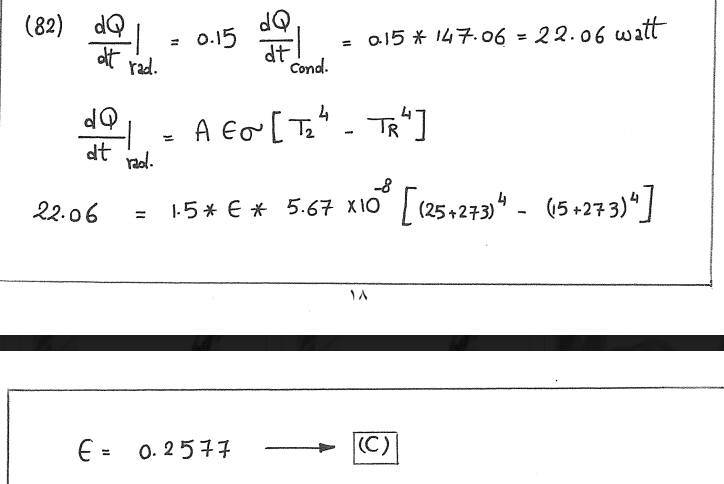 (82) dQ/dt|rad. = 0.15 dQ/dt|cond. = 0.15 * 147.06 = 22.06 watt
dQ/dt|rad. = A ϵσ [T₂⁴ - T_R⁴]
22.06 = 1.5 * ϵ * 5.67 x10⁻⁸ [(25+273)⁴ - (15+273)⁴]
١٨
ϵ = 0.2577 ⟶ (C)